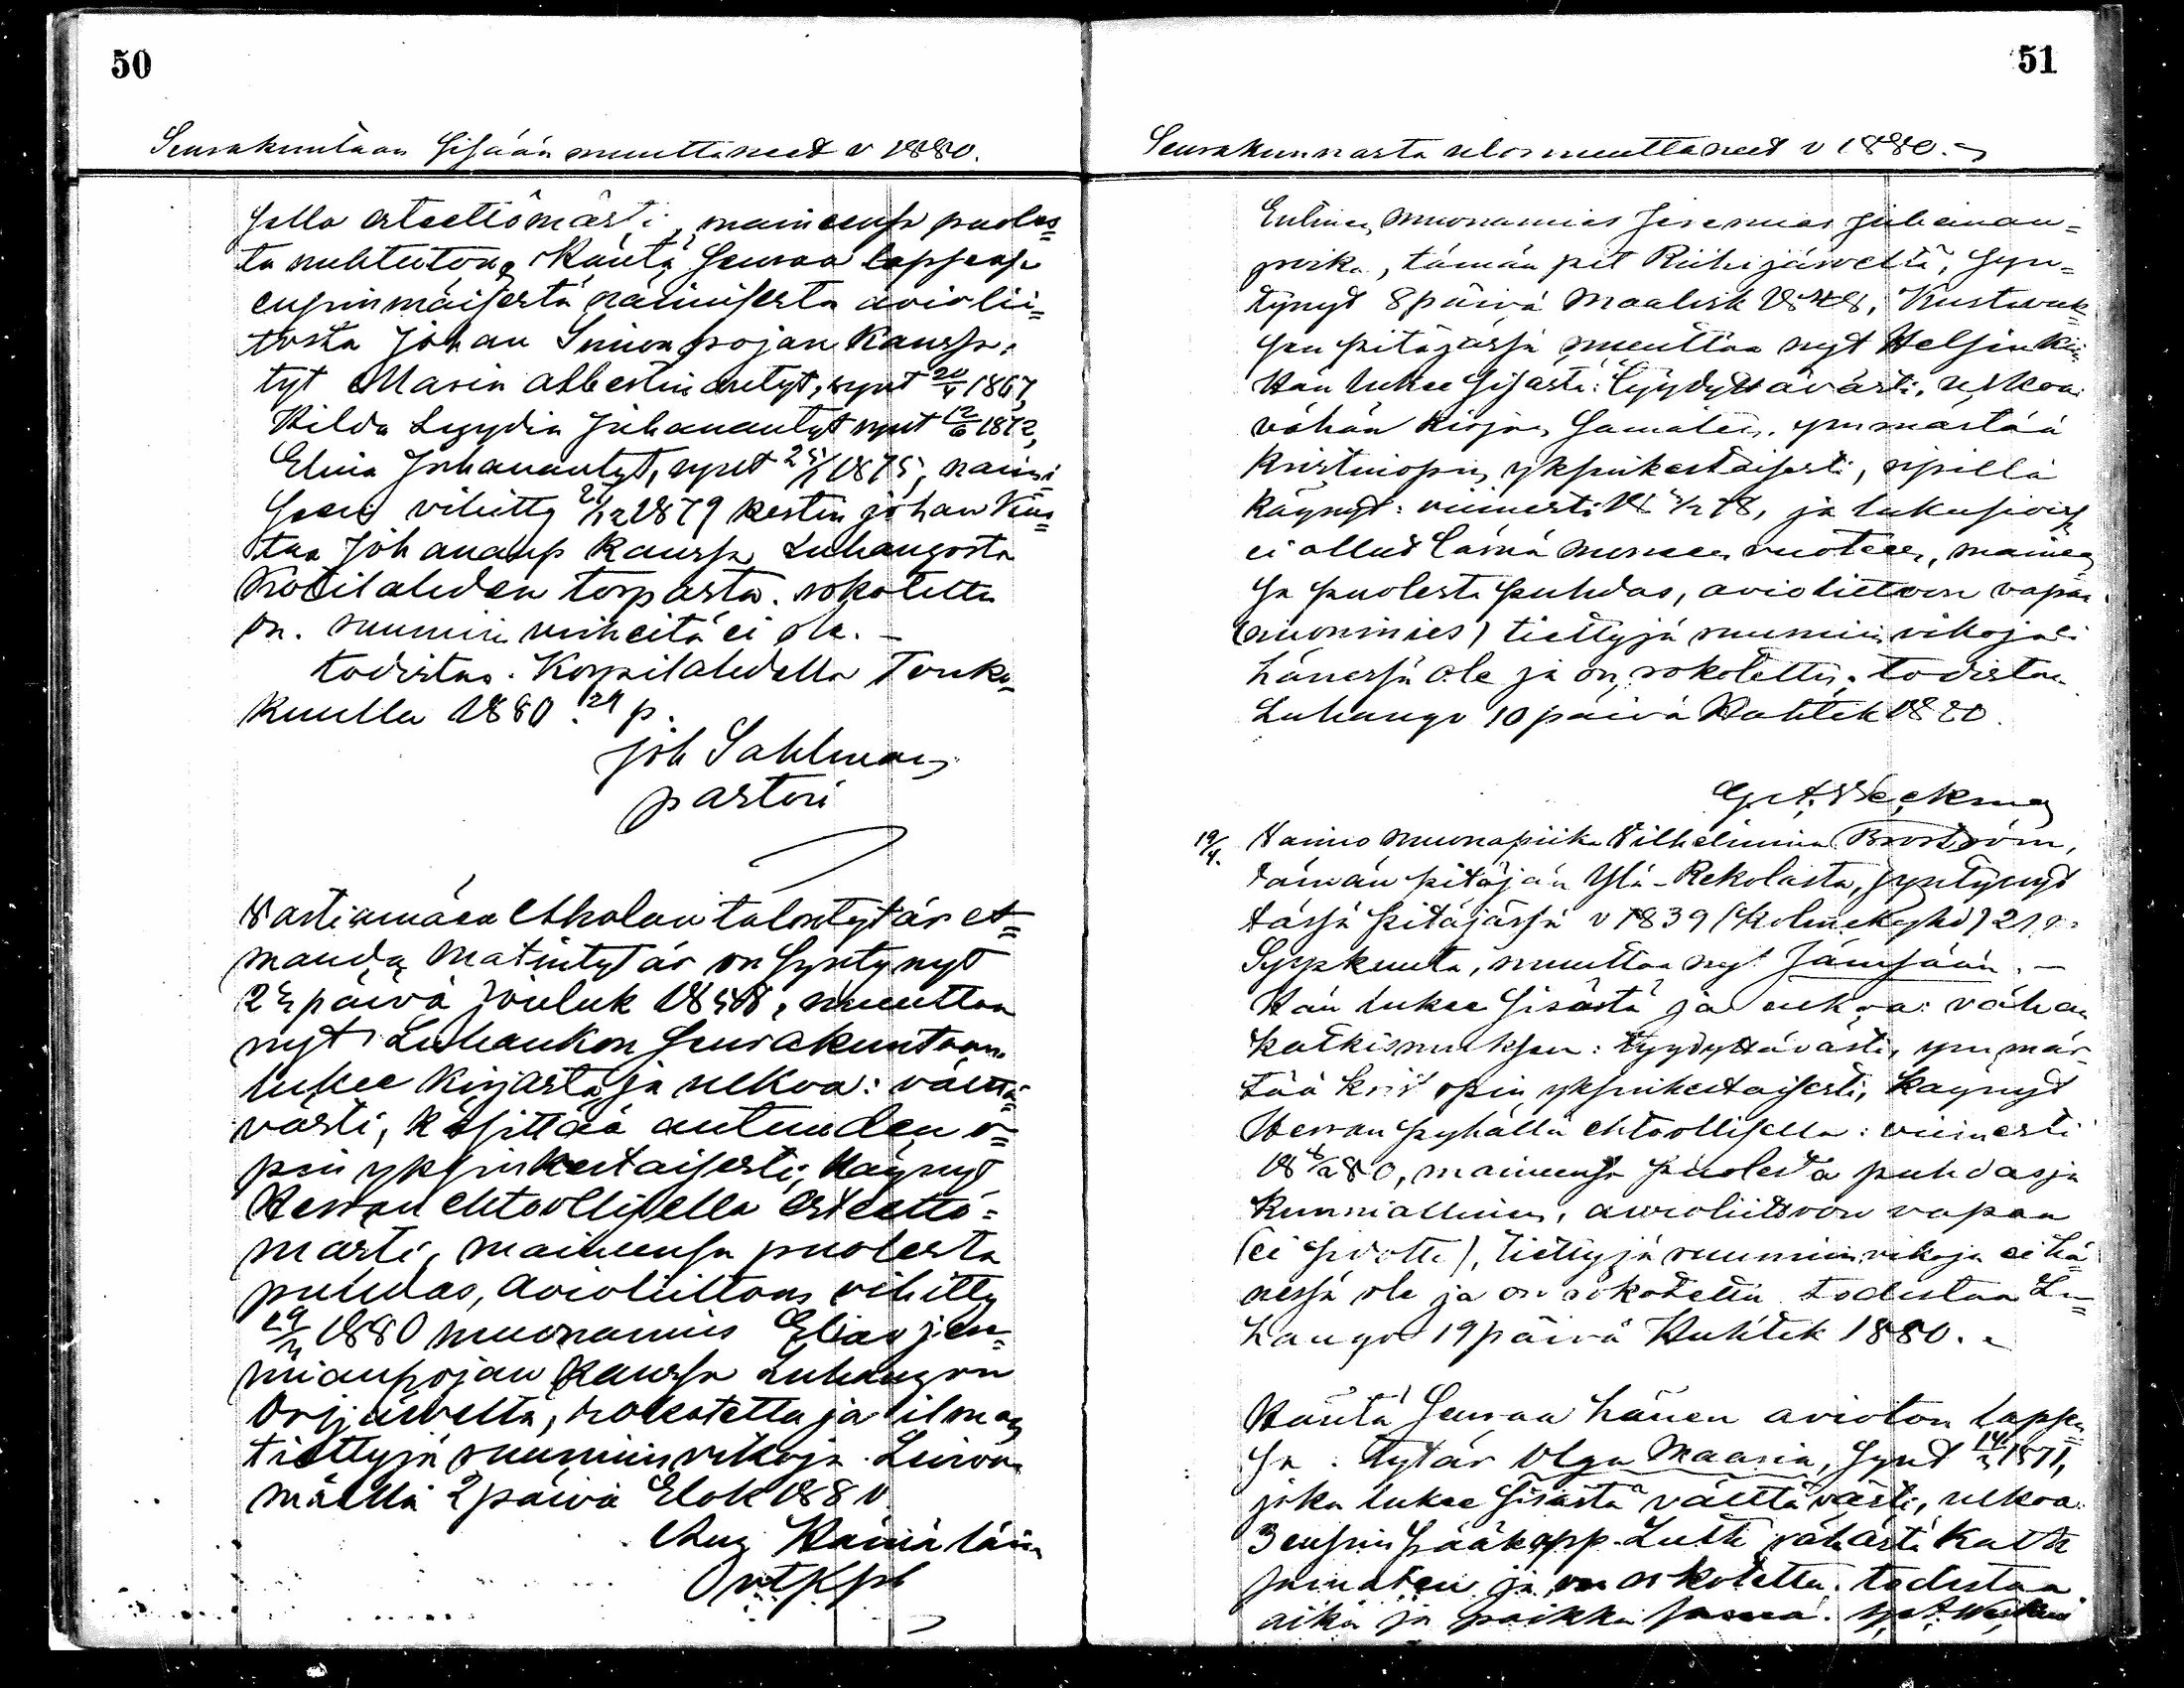 50
Seurakuntaan sisään muuttaneet v 1880.
sella esteettömästi, maineensa puoles=
ta nuhteeton, Häntä seuraa lapsensa
ensinmäisestä naimisesta aviolii=
tosta Johan Simonpojan kanssa,
tyt Maria Albertina, synt 20/4 1867,
Hilda Lyydia Juhanantyt synt 12/6 1872,
Elina Juhanantyt, synt 25/1 1875, naimi=
seen vihitty 21/12 1879 kestin Johan Kus=
taa Johananp kanssa Luhangosta
Kotilahden torpasta. rokotettu
on. ruumiin virheitä ei ole. –
todistaa. Korpilahdella Touko=
kuulla 1880. 29 p.
Joh Sahlman
pastori
Wartiamäen Aholan talontytär A=
manda Matintytär on syntynyt
25 päivä Jouluk 1858, muuttaa
nyt Luhankon seurakuntaan
lukee kirjasta ja ulkoa: välttä=
västi, käsittää autuuden o=
pin yksinkertaisesti, käynyt
Herran ehtoollisella esteettö=
mästi, maineensa puolesta
puhdas, avioliittoon vihitty
29/3 1880 muonamies Elias Jere=
mianpojan kanssa Luhangon
Orjärveltä, rokotettu ja ilman
tiettyjä ruumiin vikoja. Leivon
mäellä 2 päivä Elok 1880
Aug Hämäläin
vtKpl
51
Seurakunnasta ulosmuuttaneet v 1880.
Entinen muonamies Jeremias Juhanan=
poika, tämän pit Riihijärveltä, syn=
tynyt 8 päivä Maalisk 1848, Kustavuk
sen pitäjässä muuttaa nyt Helsinkiin
Hän lukee sisästä: tyydyttävästi, ulkoa:
vähän kirjan samaten. ymmärtää
kristinopin yksinkertaisesti, ripillä
käynyt: viimesti 18 5/12 78, ja lukusioissa
ei ollut läsnä moneen vuoteen, mainen
sa puolesta puhdas, avioliittoon vapaa
(nuorimies) tiettyjä ruumiin vikoja ei
hänessä ole ja on rokotettu. todistaa
Luhango 10 päivä Huhtik 1880.
G. A. Weckman
19/4. Vaimo muonapiika Vilhelmina Broström,
tämän pitäjän Ylä-Rekolasta, syntynyt
tässä pitäjässä v 1839 (kolmekym) 21 p:
Syyskuuta, muuttaa nyt Jämsään. –
Hän lukee sisästä ja ulkoa: vähän
katkismuksen: tyydyttävästi, ymmär
tää krist opin yksinkertaisesti, käynyt
Herran pyhällä ehtoollisella: viimesti
18 /2 80, maineensa puolesta puhdas ja
kunniallinen, avioliittoon vapaa
(ei sidottu), tiettyjä ruumiin vikoja ei hä
nessä ole ja on rokotettu todistaa Lu=
hango 19 päivä Huhtik 1880.
Häntä seuraa hänen avioton lapsen=
sa: tytär Olga Maaria, synt 14/3 1871,
joka lukee sisästä välttävästi, ulkoa:
3 ensin pääkapp. Luth vähästä katk
samaten ja on rokotettu. todistaa
aika ja paikka sama. G. A. Weckman